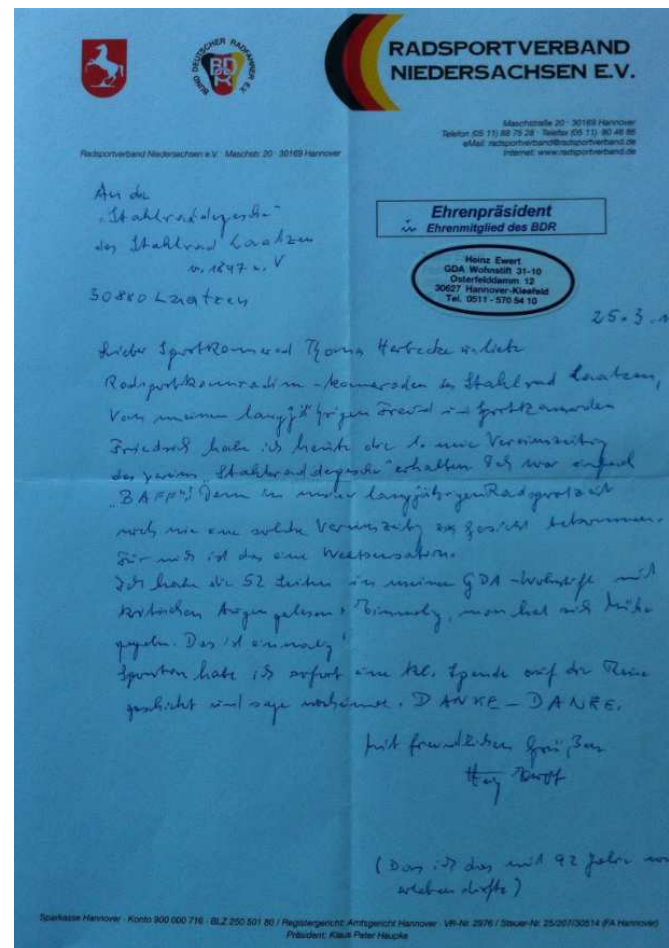 BUND DEUTSCHER RADFAHRER E.V.
BDR
RADSPORTVERBAND
NIEDERSACHSEN E.V.
Maschstraße 20 · 30169 Hannover
Telefon (05 11) 88 75 28 · Telefax (05 11) 80 46 86
eMail: radsportverband@radsportverband.de
Internet: www.radsportverband.de
Radsportverband Niedersachsen e.V. · Maschstr. 20 · 30169 Hannover
An die
"Stahlraddepesche"
des Stahlrad Laatzen
30880 Laatzen
Ehrenpräsident
Ehrenmitglied des BDR
Heinz Ewert
GDA Wohnstift 31-10
Osterfelddamm 12
30627 Hannover-Kleefeld
Tel. 0511 - 570 54 10
25.3.
Lieber Sportkamerad Thomas Harbecke
Radsportkameradinn -kameraden des Stahlrad Laatzen,
Von meinem langjährigen Freund
Friedrich habe ich heute die Vereinszeitung
"Stahlraddepesche" erhalten. Ich war einfach
"BAFF"! Denn in meiner langjährigen Radsportzeit
noch nie eine solche Vereinszeitung zu Gesicht bekommen.
Für mich ist das eine Weltsensation.
Ich habe die 52 Seiten in meinem GDA-Wohnstift mit
kritischen Augen gelesen man hat sich Mühe
gegeben. Das ist einmalig!
Spontan habe ich sofort eine kl. Spende auf die Reise
geschickt und sage nochmals. DANKE - DANKE.
Mit freundlichen Grüßen
(Das ich das mit 92 Jahre
erleben dürfte)
Sparkasse Hannover · Konto 900 000 716 · BLZ 250 501 80 / Registergericht: Amtsgericht Hannover · VR-Nr. 2976 / Steuer-Nr. 25/207/30514 (FA Hannover)
Präsident: Klaus Peter Haupke